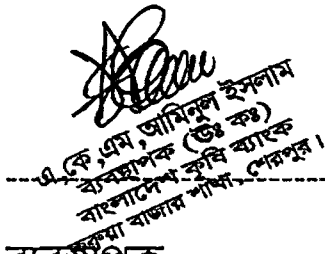 এ, কে, এম, আমিনুল ইসলাম
ব্যবস্থাপক (উঃ কঃ)
বাংলাদেশ কৃষি ব্যাংক
বাজার শাখা, শেরপুর।